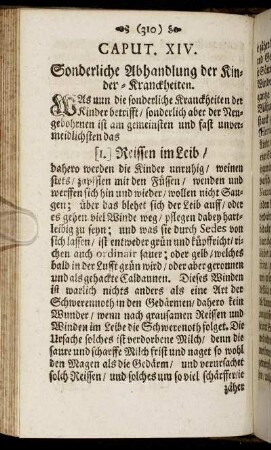 (310)
CAPUT. XIV.
Sonderliche Abhandlung der Kin-
der-Kranckheiten.
WAs nun die sonderliche Kranckheiten der
Kinder betrifft / sonderlich aber der Neu-
gebohrnen ist am gemeinsten und fast unver-
meidlichsten das
[1.] Reissen im Leib /
dahero werden die Kinder unruhig / weinen
stets / zapflen mit den Füssen / wenden und
werffen sich hin und wieder / wollen nicht Sau-
gen; über das blehet sich der Leib auff / oder
es gehen viel Winde weg / pflegen dabey hart-
leibig zu seyn; und was sie durch Sedes von
sich lassen / ist entweder grün und küpffricht / rie-
chen auch ordinair sauer; oder gelb / welches
bald in der Lufft grün wird / oder aber geronnen
und als gehackte Caldaunen. Dieses Winden
ist warlich nichts anders als eine Art der
Schwerennoth in den Gedärmen / dahero kein
Wunder / wenn nach grausamen Reissen und
Winden im Leibe die Schwerenoth folget. Die
Ursache solches ist verdorbene Milch / denn die
saure und scharffe Milch frist und naget so wohl
den Magen als die Gedärm / und verursachet
solch Reissen / und solches um so viel schärffer / ie
zäher